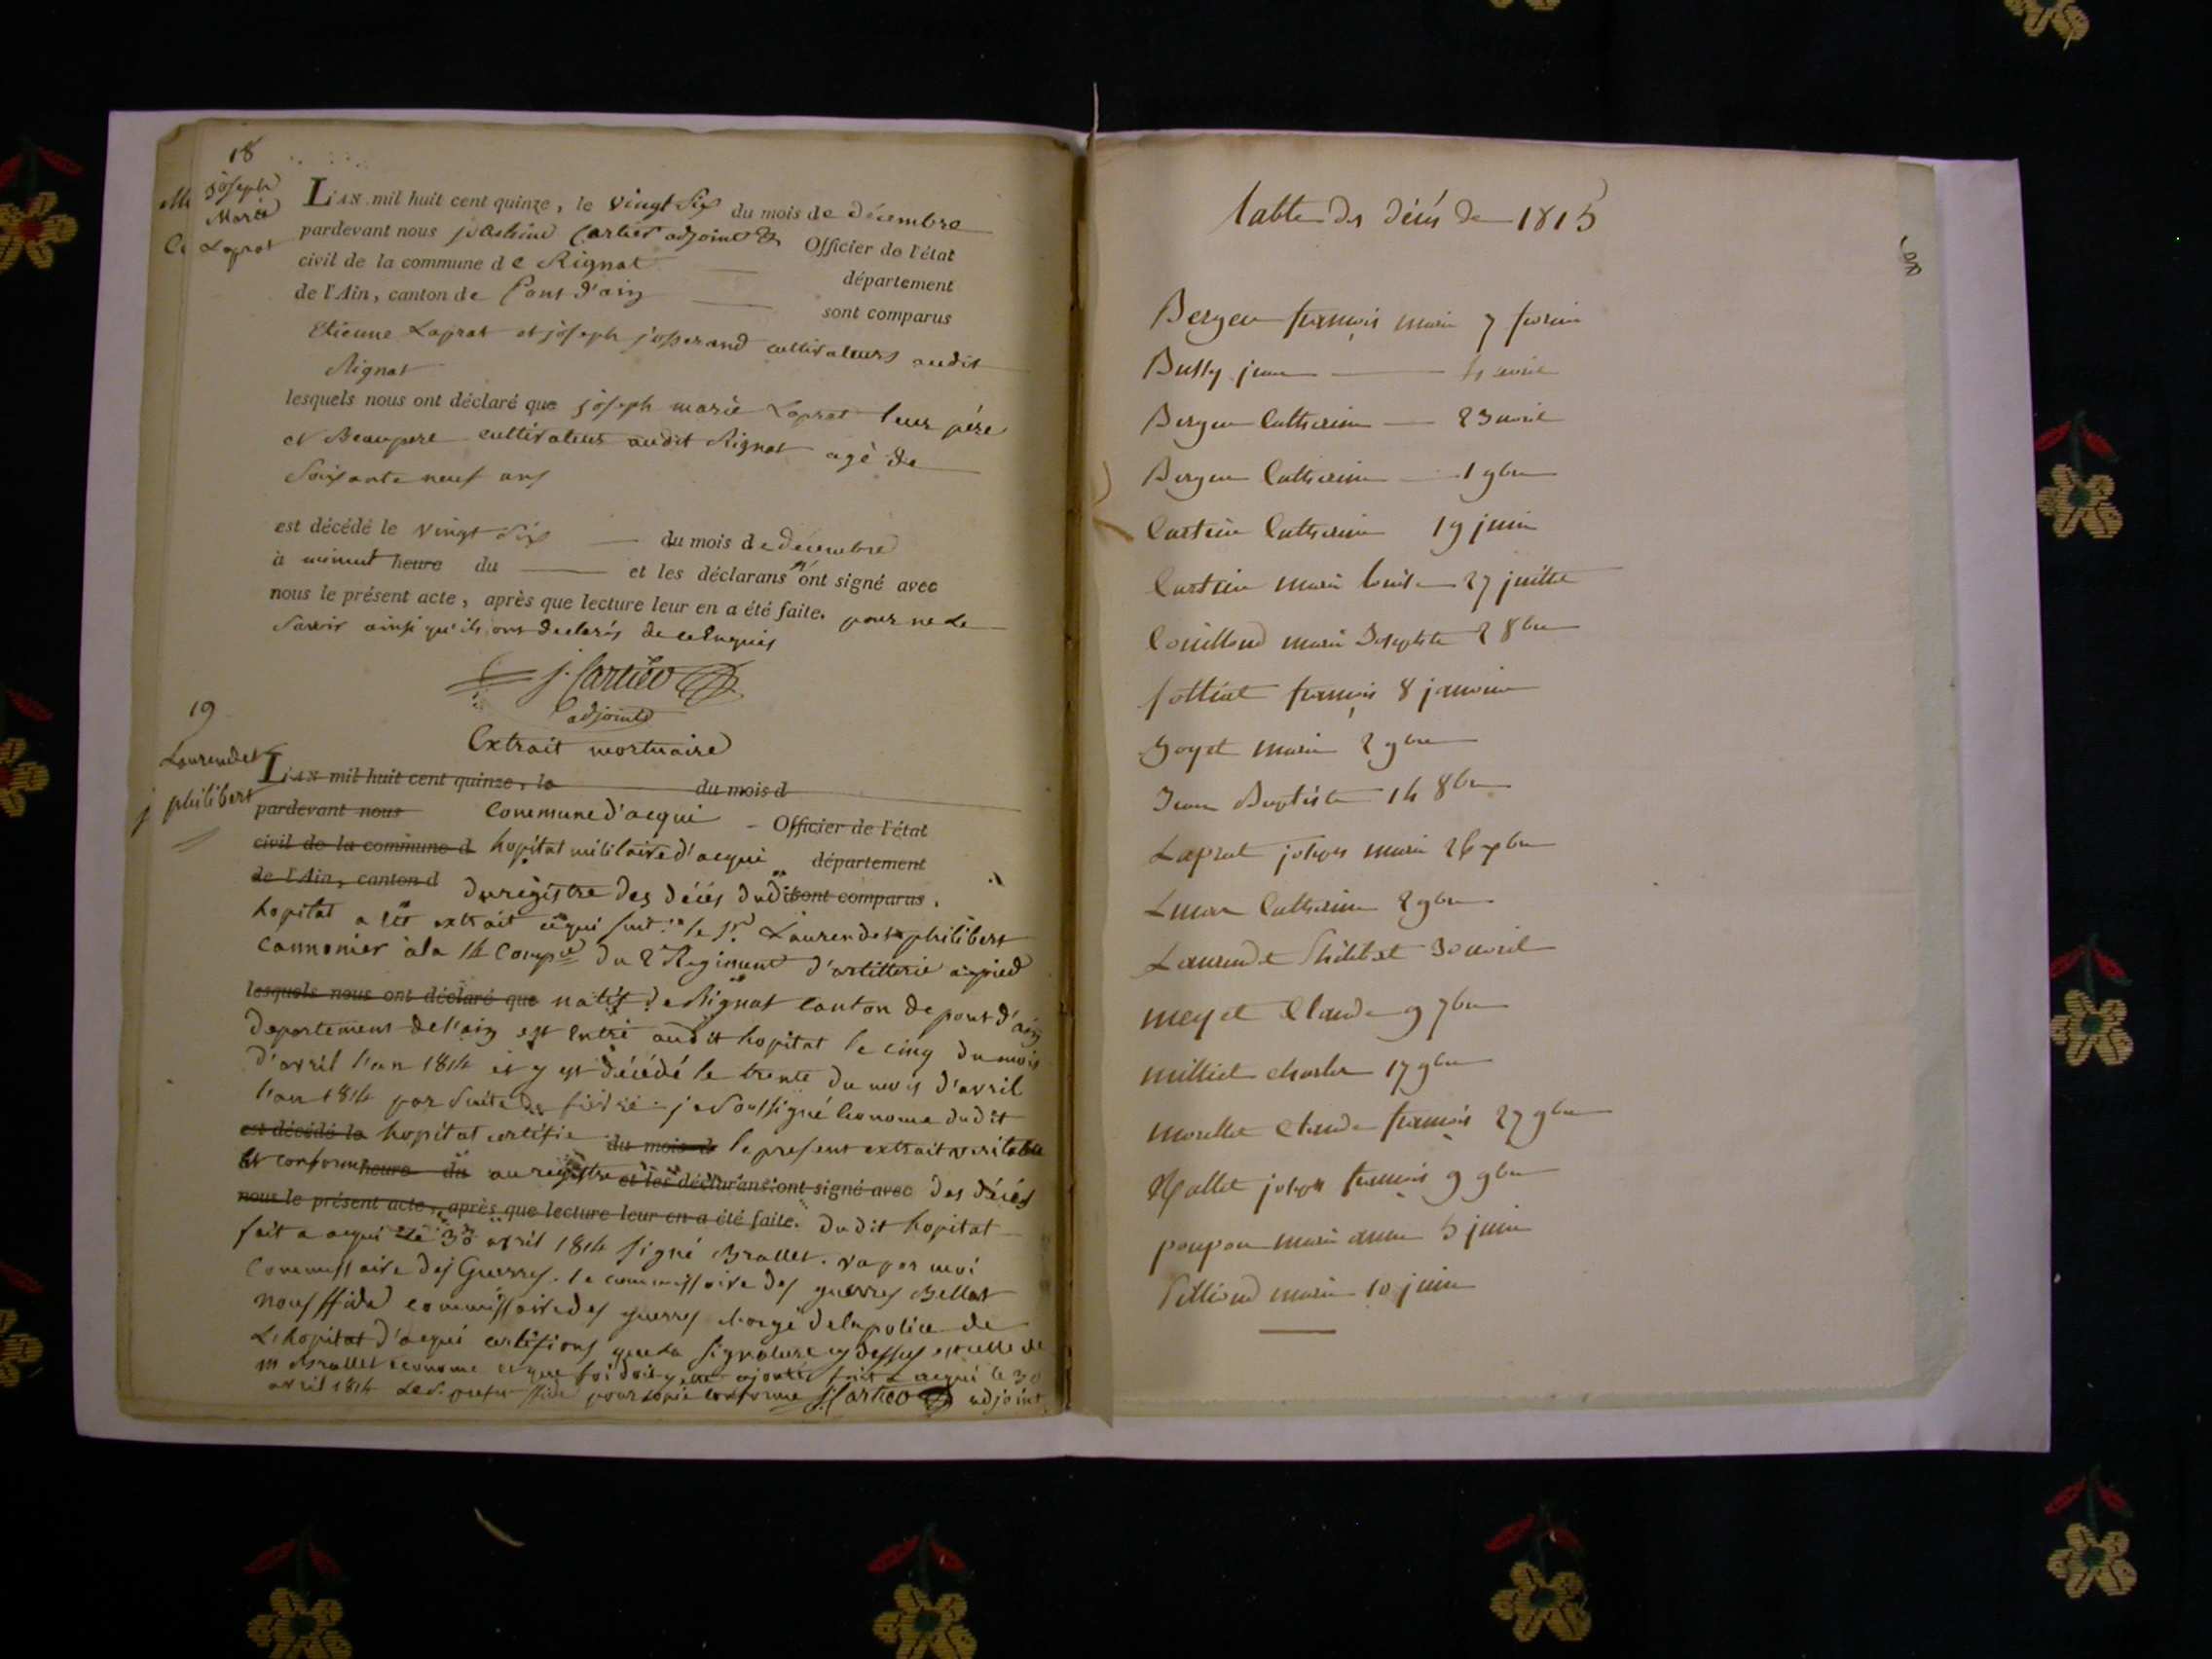 18
joseph
Marie
Laprat
L'AN mil huit cent quinze, le vingt Six du mois de décembre
pardevant nous Cartier adjoint Officier de l'état
civil de la commune de Rignat département
de l'Ain, canton de Pont d'ain sont comparus
Etienne Laprat et joseph josserand cultivateurs audit
Rignat
lesquels nous ont déclaré que joseph marie Laprat leur père
et Beaupere cultivateur audit Rignat agé de
Soixante neuf ans
est décédé le vingt Six du mois de decembre
à minuit heure du et les déclarans n'ont signé avec
nous le présent acte, après que lecture leur en a été faite. pour ne le
Savoir ainsi qu'ils ont declarés de ce Enquis
j. Cartier
adjoint
Extrait mortuaire
19
Laurendet
philibert
L'AN mil huit cent quinze, le du mois d
pardevant nous Commune d'acqui Officier de l'état
civil de la commune d hopital militaire d'acqui département
de l'Ain, canton d du registre des décés dudit sont comparus
hopital a été extrait ce qui suit le Sr. Laurendet philibert
Cannonier à la 14 Compie du 2 Regiment d'artillerie a pied
lesquels nous ont déclaré que natif de Rignat canton de pont d'ain
departement de l'ain est Entré audit hopital le cinq du mois
d'avril l'an 1814 et y est décédé le trente du mois d'avril
l'an 1814 par Suite de fievre je Soussigné Econome dudit
est décédé le hopital certifie du mois d le present extrait veritable
et conforme heure du au registre et les déclarans ont signé avec des décés
nous le présent acte, après que lecture leur en a été faite. dudit hopital
fait a acqui le 30 avril 1814 signé Brallet. vu par moi
Commissaire des Guerres. le commissaire des guerres Bellat
nous commissaire des guerres chargé de la police de
L'hopital d'acqui certifions que la signature cy dessus est celle de
m Brallet Econome et que foi doit y etre ajoutée fait a acqui le 30
avril 1814 pour copie conforme j. Cartier adjoint
table des décés de 1815
Berger françois marie 7 fevrier
Bussy jean 4 avril
Berger Catherine 23 avril
Berger Catherine 1 9bre
Cartier Catherine 19 juin
Cartier marie Louise 27 juillet
Couilloud marie Josephte 2 8bre
folliet françois 8 janvier
Goyet marie 2 9bre
Jean Baptiste 14 8bre
Laprat joseph marie 26 xbre
Catherine 2 9bre
Laurendet Philibert 30 avril
meyet Claude 9 7bre
milliet charles 17 9bre
morellet Claude françois 27 9bre
Mallet joseph françois 9 9bre
poupon marie anne 5 juin
marie 10 juin